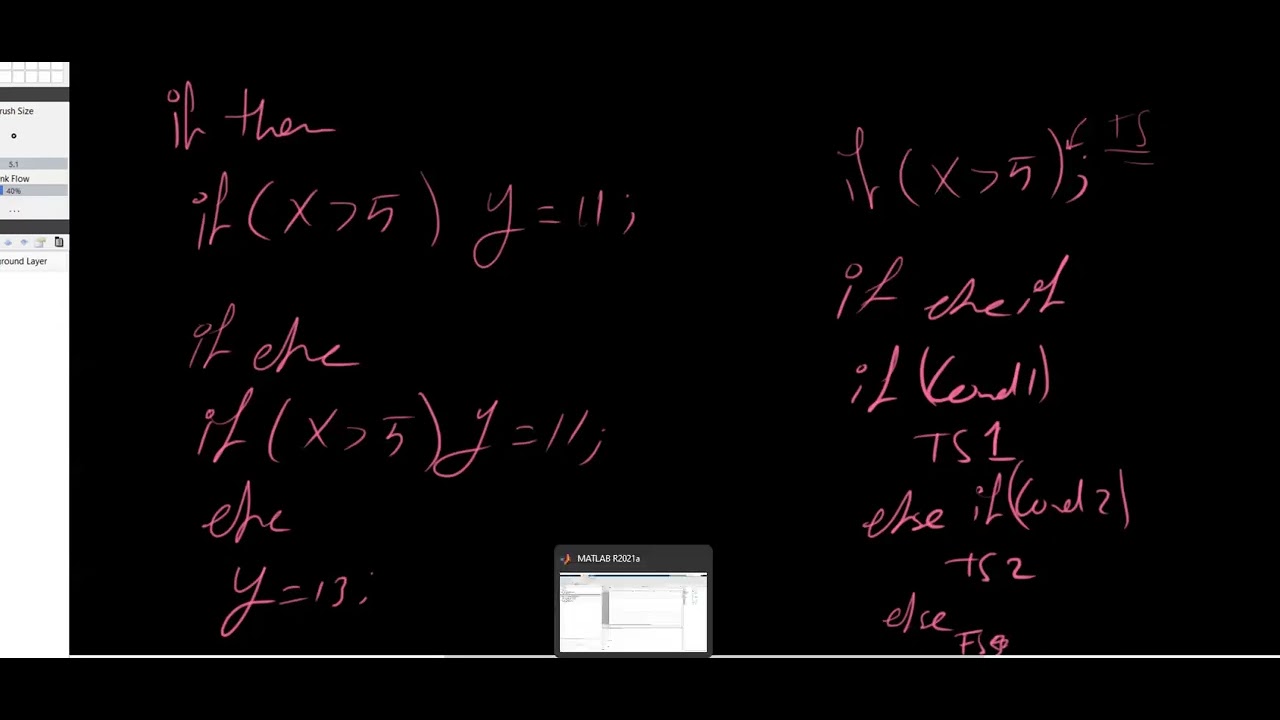 rush Size
5.1
nk Flow
40%
...
ground Layer
if then
if (x>5) y=11;
if else
if (x>5) y=11;
else
y=13;
TS
if (x>5);
if else if
if (cond1)
TS1
else if (cond2)
TS2
else
FS
MATLAB R2021a